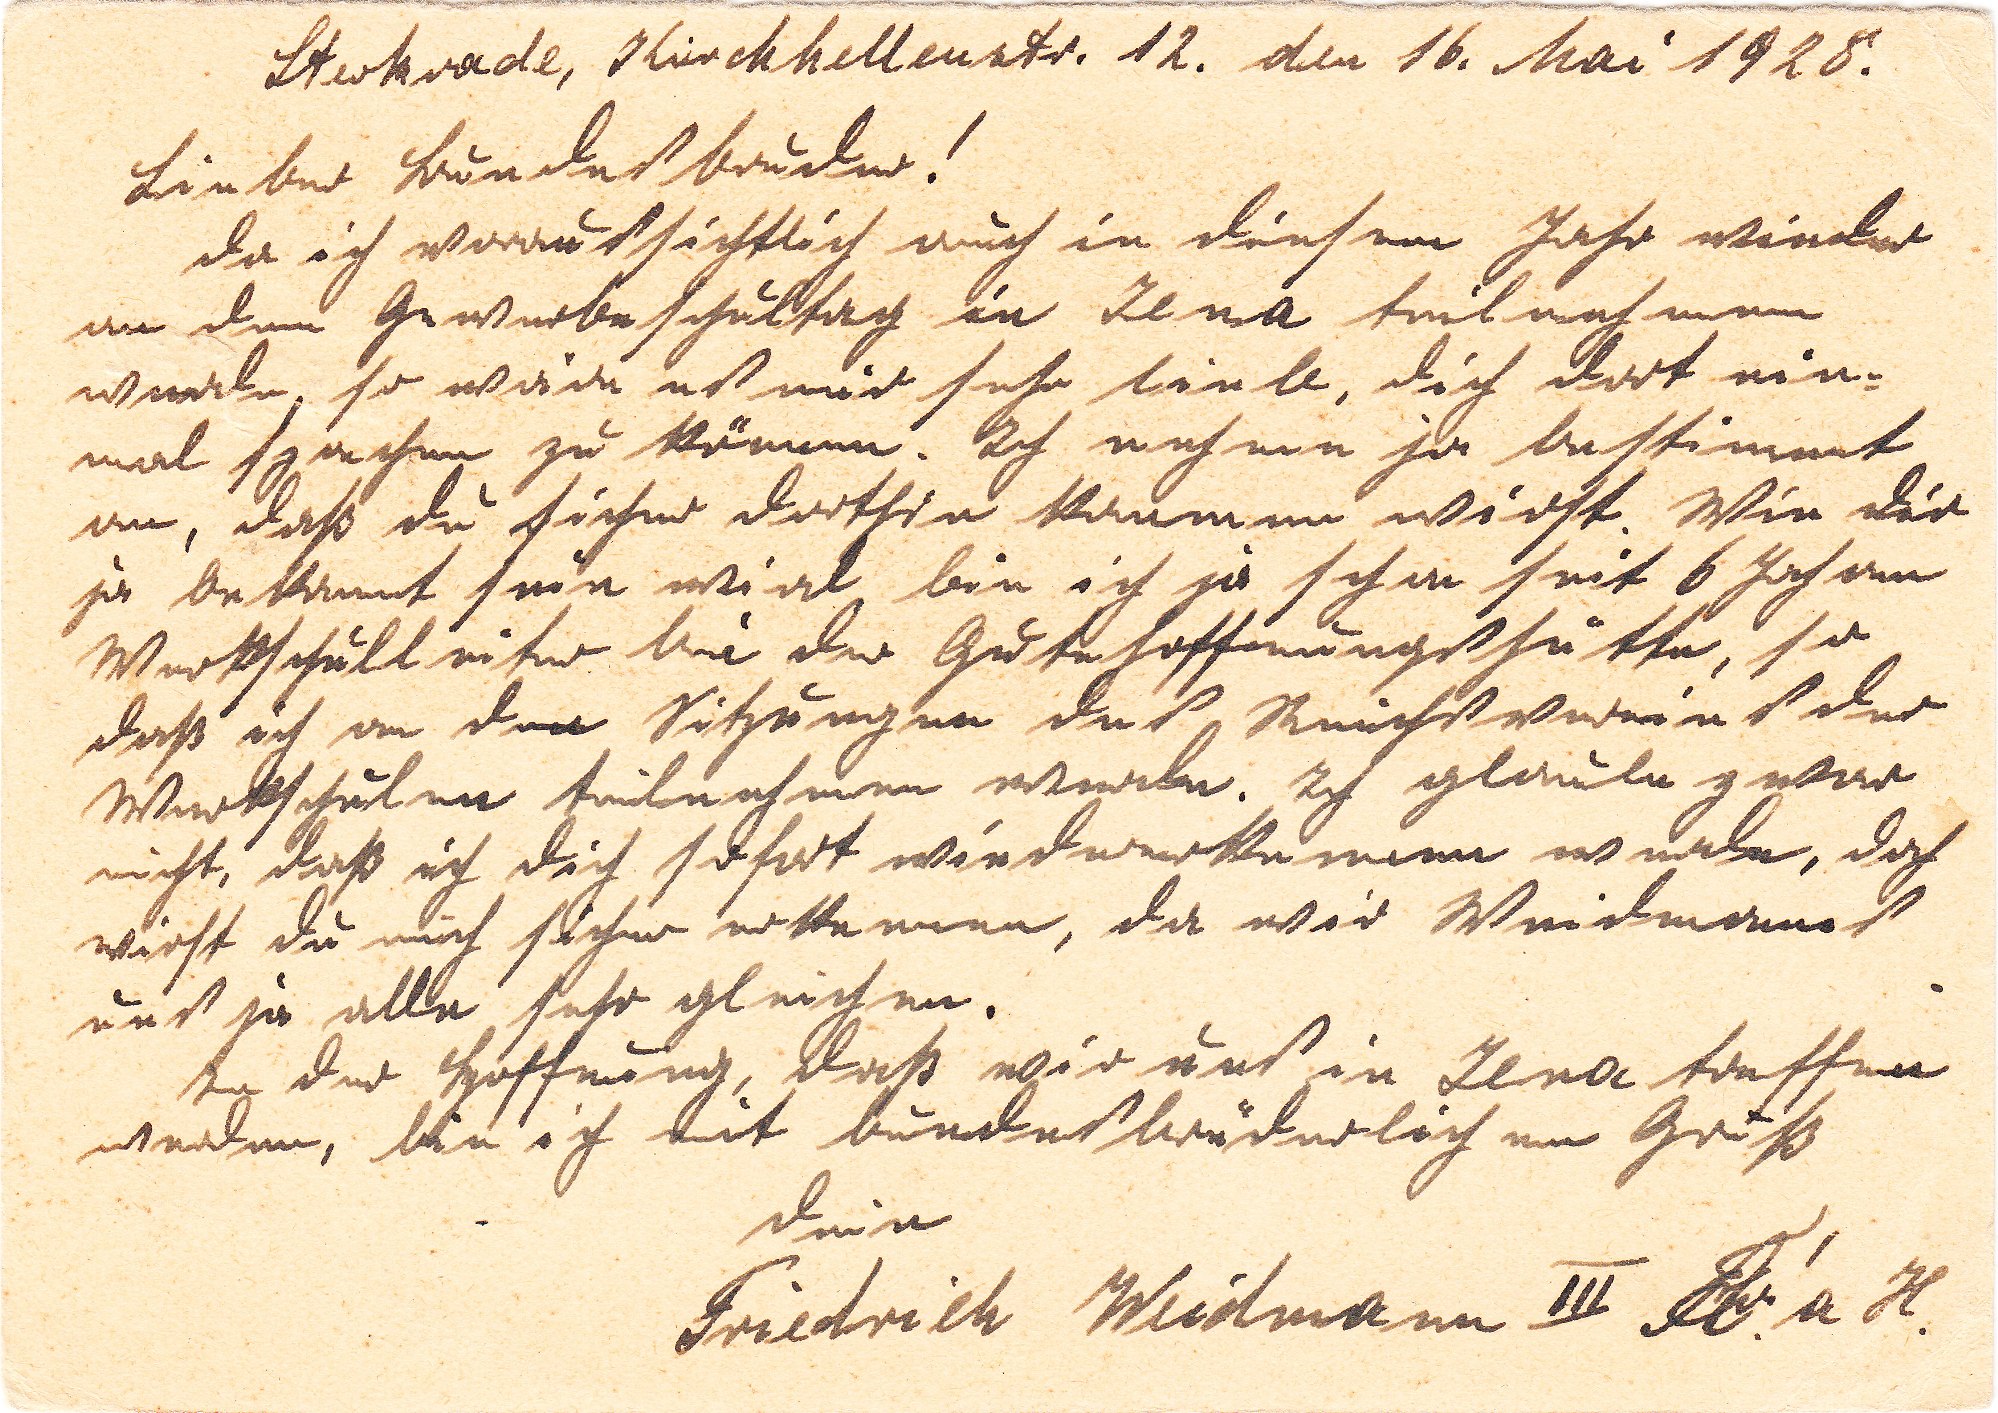 Sterkrade, Kirchhellenstr. 12. den 16. Mai 1928.
Lieber Bundesbruder!
da ich voraussichtlich auch in diesem Jahr wieder
an dem Gewerbeschultag in Jena teilnehmen
werde, so wäre es mir sehr lieb, dich dort ein=
mal sprechen zu können. Ich nehme ja bestimmt
an, daß du sicher dorthin kommen wirst. Wie dir
ja bekannt sein wird bin ich ja schon seit 6 Jahren
Werkschulleiter bei der Gutehoffnungshütte, so
daß ich an den Sitzungen des Reichsvereins der
Werkschulen teilnehmen werde. Ich glaube zwar
nicht, daß ich dich sofort wiedererkennen werde, doch
wirst du mich sicher erkennen, da wir Weidmanns
uns ja alle sehr gleichen.
In der Hoffnung, daß wir uns in Jena treffen
werden, bin ich mit bundesbrüderlichem Gruß
dein
Friedrich Weidmann III a H.